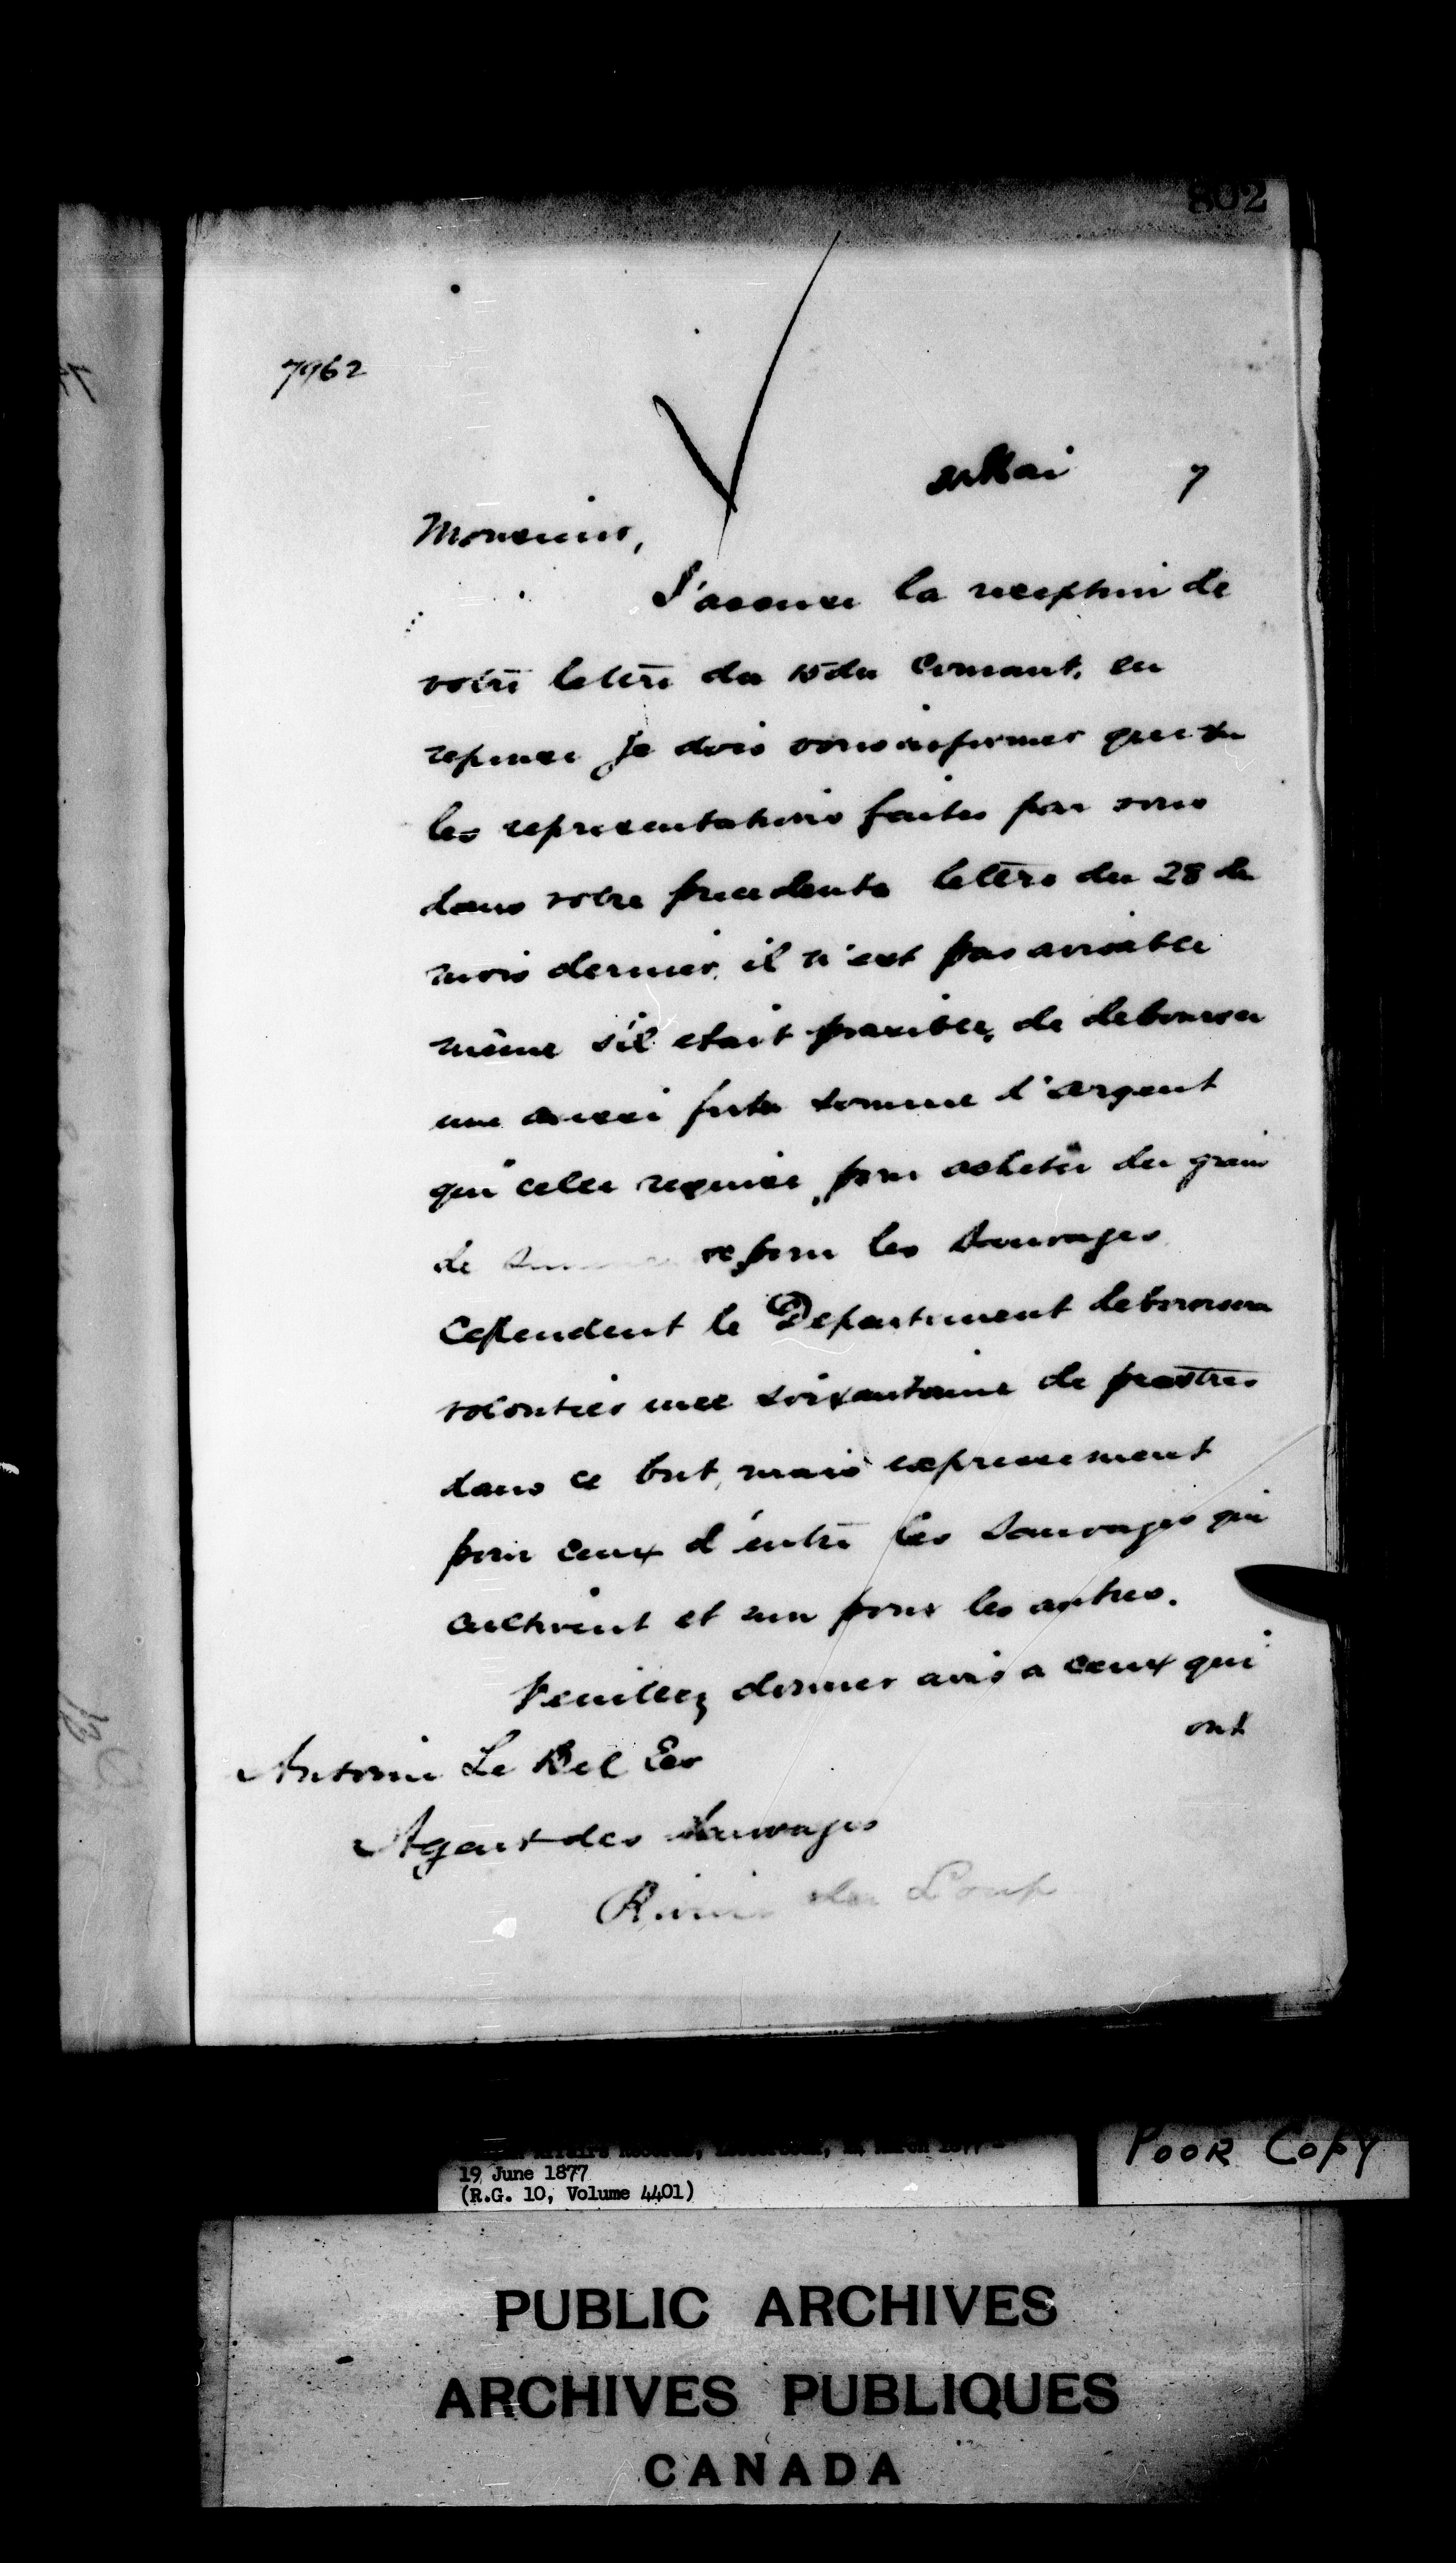 802
7962
Mai 7
Monsieur,
J'accuse la reception de
votre lettre du 15 du courant, en
reponse je dois vous informer que vu
les representations faites par vous
dans votre precedente lettre du 28 du
mois dernier, il n'est pas avisable
même s'il etait possible, de debourser
une aussi forte somme d'argent
que celle requise pour acheter du grain
de pour les Sauvages
Cependent le Departement deboursera
volontier une soixantaine de piastres
dans ce but, mais expressement
pour ceux d'entre les Sauvages qui
cultivent et non pour les autres.
Veuillez donner avis a ceux qui
ont
Antoine Le Bel Ecr
Agent des Sauvages
Riviere du Loup
Affairs Records, Letterbook, March 1877 -
19 June 1877
(R.G. 10, Volume 4401)
POOR COPY
PUBLIC ARCHIVES
ARCHIVES PUBLIQUES
CANADA